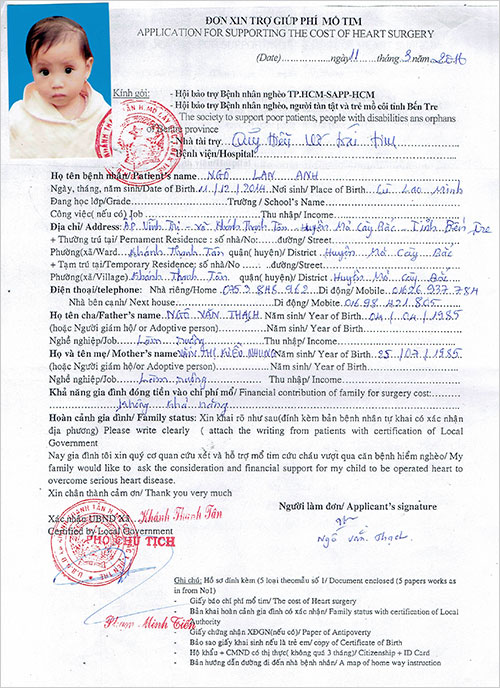 ĐƠN XIN TRỢ GIÚP PHÍ MỔ TIM
APPLICATION FOR SUPPORTING THE COST OF HEART SURGERY
(Date)..................ngày 11 ........tháng 3 năm 2016
Kính gởi: - Hội bảo trợ Bệnh nhân nghèo TP.HCM-SAPP-HCM
- Hội bảo trợ Bệnh nhân nghèo, người tàn tật và trẻ mồ côi tỉnh Bến Tre
The society to support poor patients, people with disabilities ans orphans
of Bentre province
- Nhà tài trợ trái tim
- Bệnh viện/Hospital:
Họ tên bệnh nhân/ Patient's name NGÔ LAN ANH
Ngày, tháng, năm sinh/Date of Birth 11/12/2014 Nơi sinh/ Place of Birth Cù Lao Minh
Đang học lớp/Grade Trường / School's Name
Công việc( nếu có) Job Thu nhập/ Income
Địa chỉ/ Address: Ấp Vĩnh Trị - xã Khánh Thạnh Tân Huyện Mỏ Cày Bắc - Tỉnh Bến Tre
+ Thường trú tại/ Pernament Residence : số nhà/No: đường/ Street
Phường(xã)/Ward Khánh Thạnh Tân quận( huyện)/ District Huyện Mỏ Cày Bắc
+ Tạm trú tại/Temporary Residence; số nhà/ No ...... đường/ Street
Phường(xã)/Village) Khánh Thạnh Tân quận( huyện)/ District Huyện Mỏ Cày Bắc
Điện thoại/telephone: Nhà riêng/Home 0753 846 962 Di động / Mobile 01626 937 784
Nhà bên cạnh/ Next house Di động/ Mobite 0168 421 805
Họ tên cha/Father's name NGÔ VĂN THẠCH Năm sinh/ Year of Birth 01/01/1985
(hoặc Người giám hộ/ or Adoptive person) Năm sinh/ Year of Birth
Nghề nghiệp/Job Làm ruộng Thu nhập/ Income
Họ và tên mẹ/ Mother's name THỊ KIỀU NHUNG Năm sinh/ Year of Birth 25/07/1985
(hoặc Người giám hộ/or Adoptive person) Năm sinh/ Year of Birth
Nghề nghiệp/Job Làm ruộng Thu nhập/ Income
Khả năng gia đình đóng tiền vào chi phí mổ/ Financial contribution of family for surgery cost:
không khả năng
Hoàn cảnh gia đình/ Family status: Xin khai rõ như sau(đính kèm bản bệnh nhân tự khai có xác nhận
địa phương) Please write clearly ( attach the writing from patients with certification of Local
Government
Nay gia đình tôi xin quý cơ quan cứu xét và hỗ trợ mổ tim cứu cháu vượt qua căn bệnh hiểm nghèo/ My
family would like to ask the consideration and financial support for my child to be operated heart to
overcome serious heart disease.
Xin chân thành cảm ơn/ Thank you very much
Người làm đơn/ Applicant's signature
Xác nhận UBND Xã Khánh Thạnh Tân
Certified by Local Government
PHÓ CHỦ TỊCH
Ngô Văn Thạch
Phạm Minh Tiến
Ghi chú: Hồ sơ đính kèm (5 loại theomẫu số 1/ Document enclosed (5 papers works as
in from No1)
- Giấy báo chi phí mổ tim/ The cost of Heart surgery
- Bản khai hoàn cảnh gia đình có xác nhận/ Family status with certification of Local
Authority
- Giấy chứng nhận XĐGN(nếu có)/ Paper of Antipoverty
- Bảo sao giấy khai sinh nếu là trẻ em/ copy of Certificate of Birth
- Hộ khẩu + CMND có thị thực( không quá 3 tháng)/ Citizenship + ID Card
- Bản hướng dẫn đường đi đến nhà bệnh nhân/ A map of home way instruction